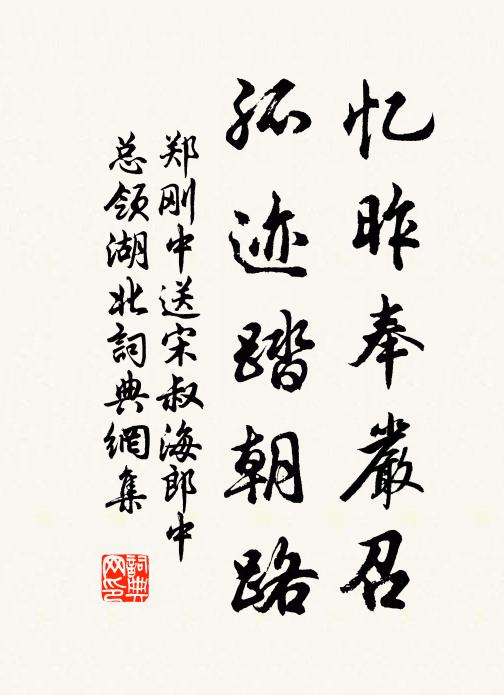 忆昨奉嚴召
孤迹踏朝路
郑刚中送宋叔海郎中
总领湖北詞典網集
詞典
网印